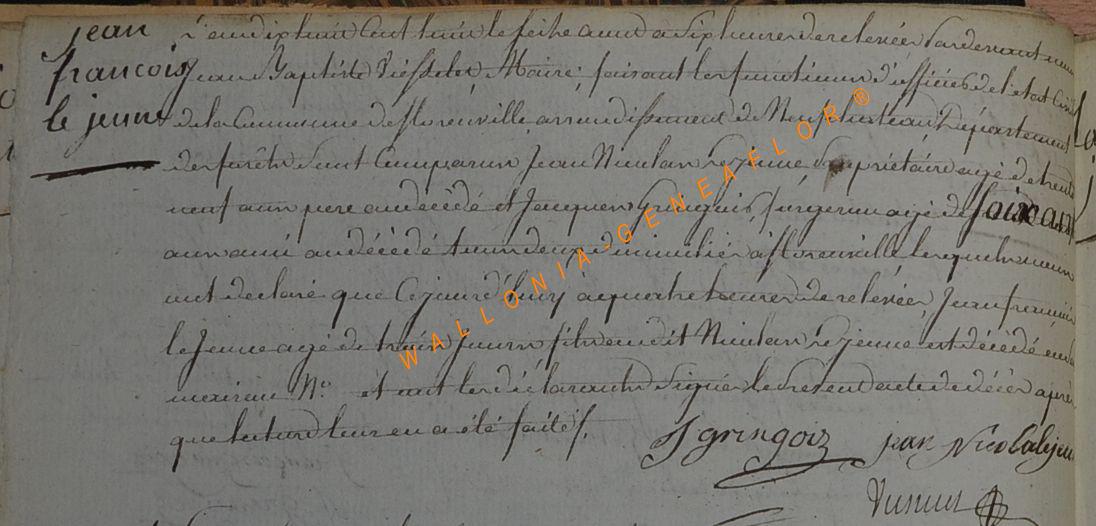 jean
françois
le jeune
L'an dix huit cent huit le seize aout a six heures de relevée Pardevant nous
Jean Baptiste Maire faisant les fonctions d'officier de l'etat Civil
de la Commune de florenville arrondissement de Neufchateau Département
des forêts sont Comparus Jean Nicolas Lejeune Propriétaire agé de trente
neuf ans pere au décédé et Jacques Gringois agé de soixante
ans ami au décédé tous deux domiciliés à florenville lesquels nous
ont declaré que Cejourd'huy a quatre heures de relevée, Jean françois
le Jeune agé de trois jours fils dudit Nicolas Lejeune est décédé en sa
maison N.o et ont les déclarants signé le present acte de décès après
que lecture leur en a été faite.
J gringoiz
jean Nicola lejeu
WALLONIA-GENEAFLOR®